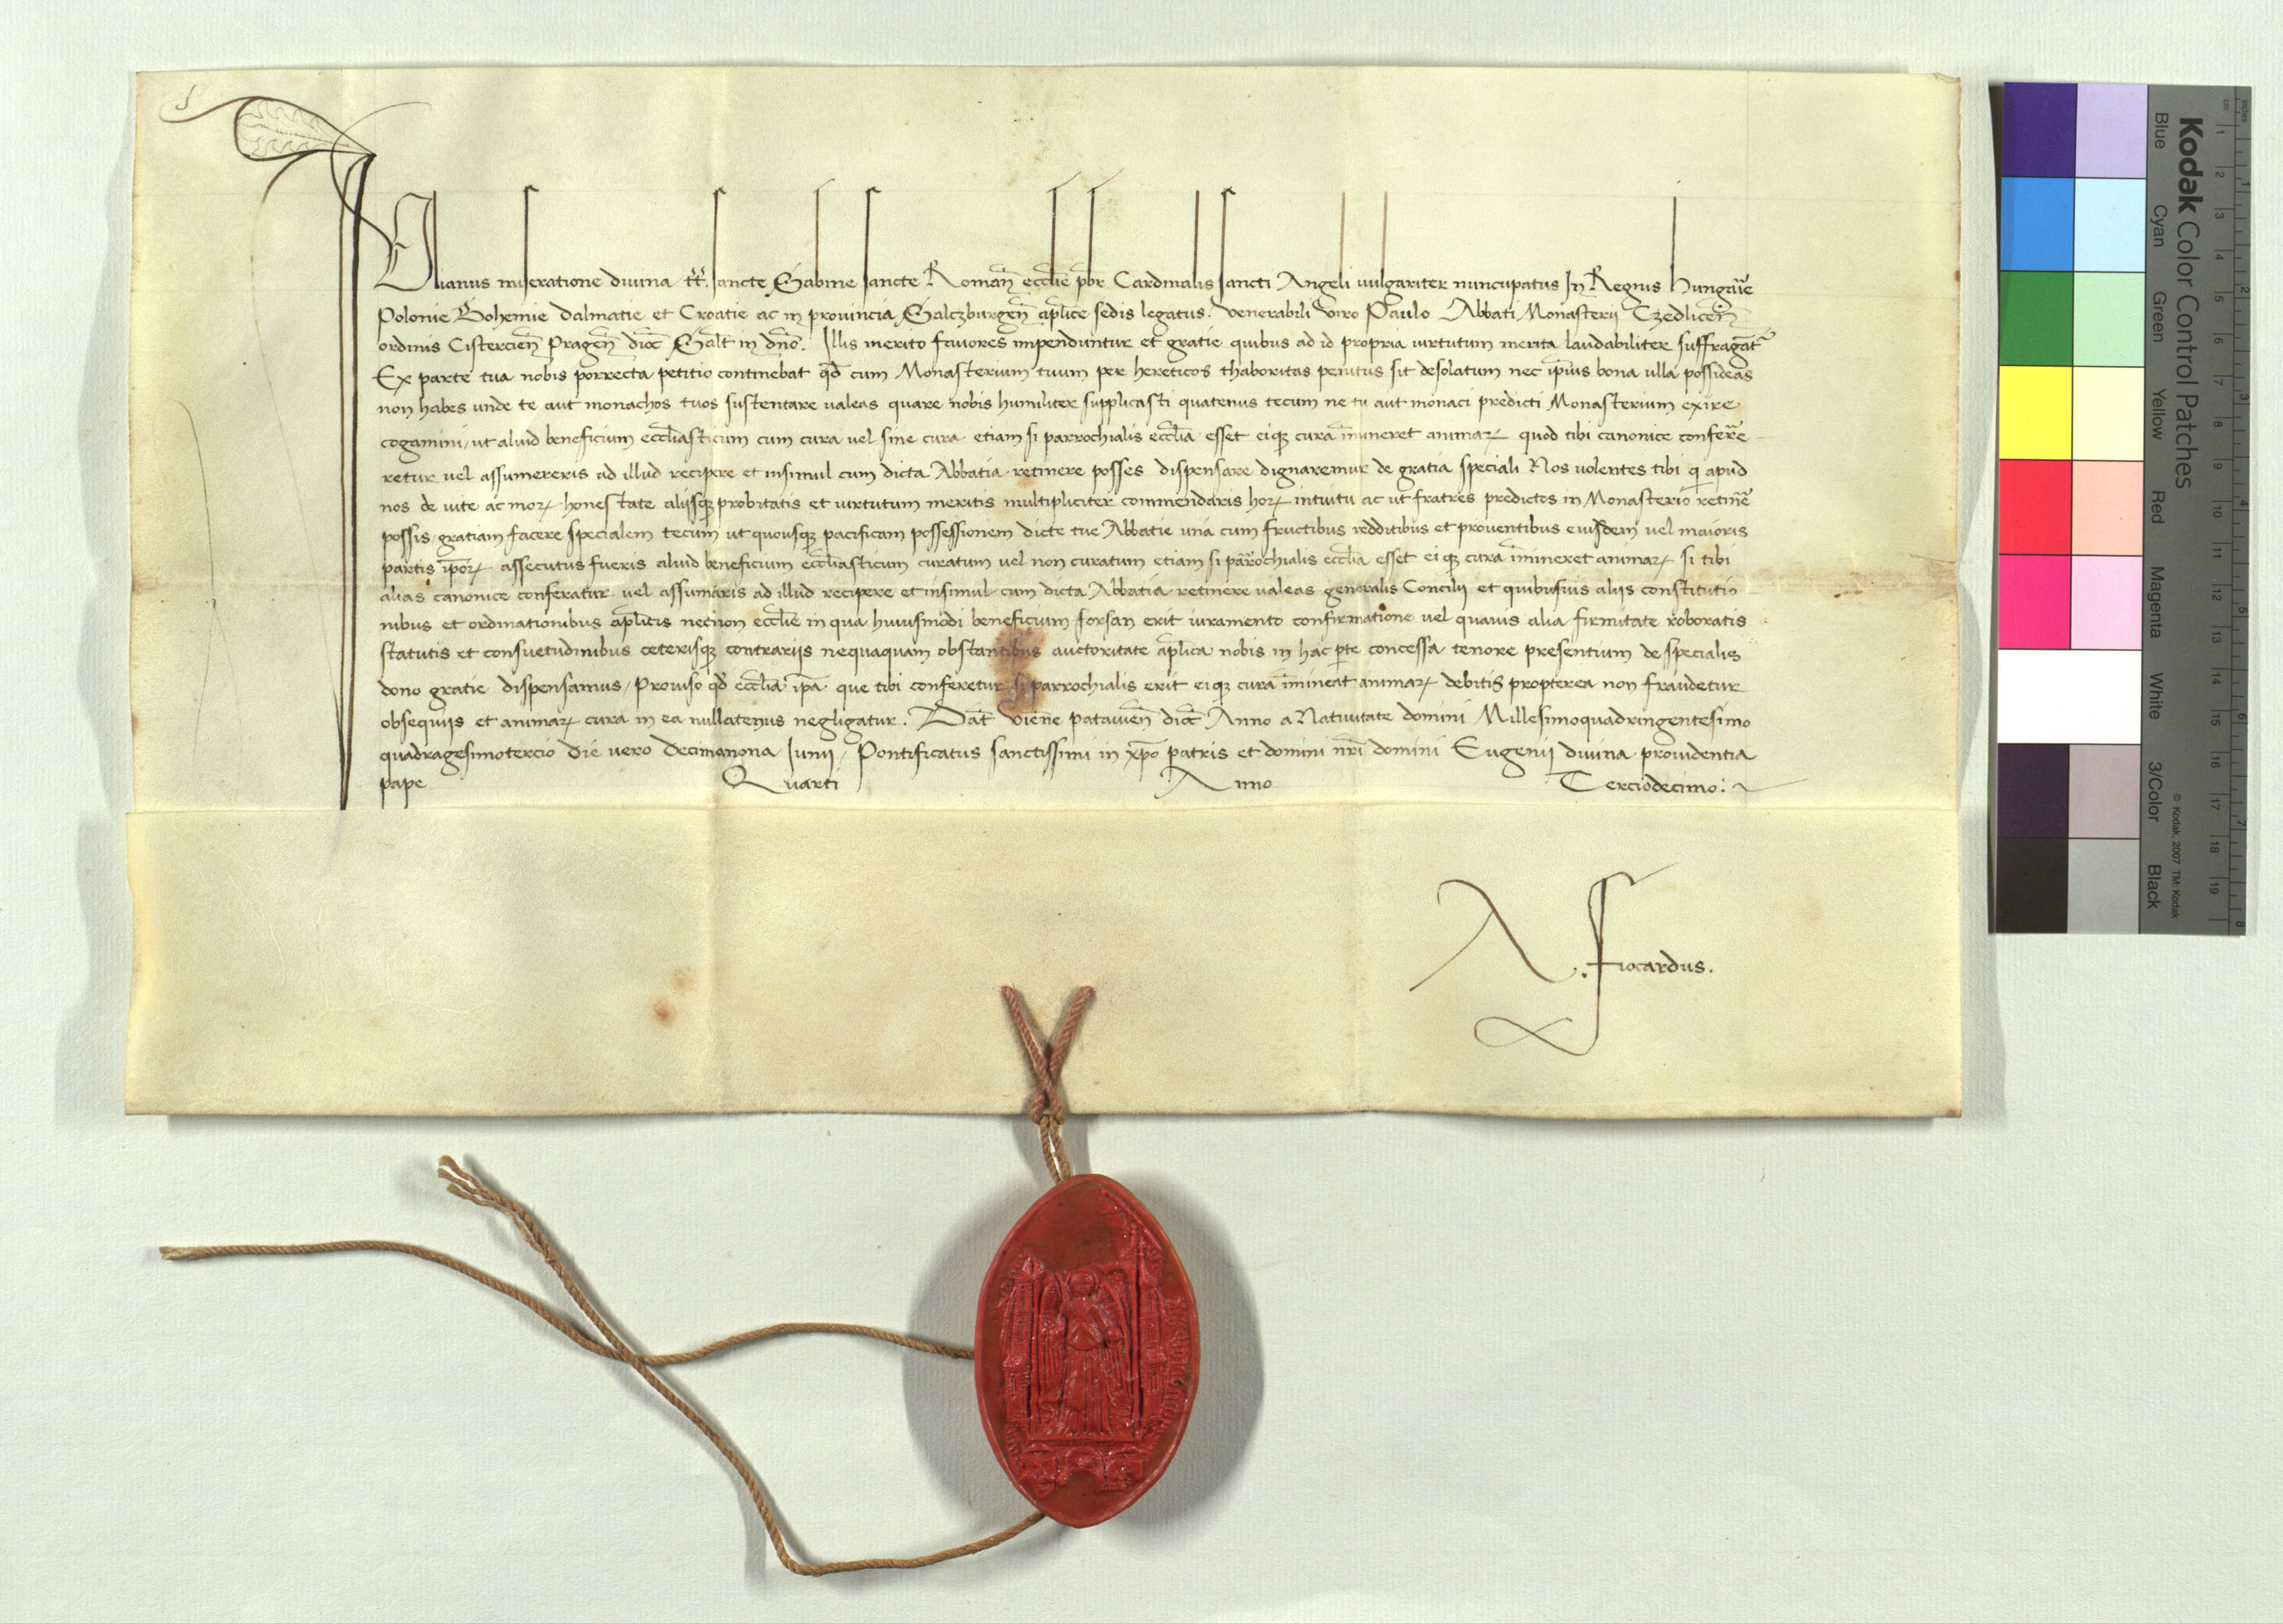 Iulianus miseratione divina tt̄. sancte Sabine sancte Romañ eccłie p̄br Cardinalis sancti Angeli vulgariter nuncupatus In Regnis Hungarie
Polonie Bohemie Dalmatie et Croatie ac in provincia Salczburgeñ ap̄lice sedis legatus. Venerabili viro Paulo Abbati Monasterii Czedliceñ
ordinis Cistercieñ Prageñ dioc̄ Salt̄ in dn̄o. Illis merito favores impenduntur et gratie quibus ad id propria virtutum merita laudabiliter suffragāt̄
Ex parte tua nobis porrecta petitio continebat qd̄ cum Monasterium tuum per hereticos thaboritas penitus sit desolatum nec ip̄ius bona ulla possideas
non habes unde te aut monachos tuos sustentare valeas quare nobis humiliter supplicasti quatenus tecum ne tu aut monaci predicti Monasterium exire
cogamini, ut aliud beneficium eccl̄iasticum cum cura vel sine cura etiam si parrochialis eccl̄ia esset eiqꝫ cura im̄ineret animaꝝ quod tibi canonice confer̄e
retur vel assumereris ad illud recipere et insimul cum dicta Abbatia retinere posses dispensare dignaremur de gratia speciali Nos volentes tibi q̄ apud
nos de vite ac moꝝ honestate aliisqꝫ probitatis et virtutum meritis multipliciter commendaris hoꝝ intuitu ac ut fratres predictos in Monasterio retiner̄e
possis, gratiam facere specialem tecum ut quousqꝫ pacificam possessionem dicte tue Abbatie una cum fructibus redditibus et proventibus eiusdem vel maioris
partis ip̄oꝝ assecutus fueris aliud beneficium eccl̄iasticum curatum vel non curatum etiam si parrochialis eccl̄ia esset eiqꝫ cura im̄ineret animaꝝ si tibi
alias canonice conferatur vel assumaris ad illud recipere et insimul cum dicta Abbatia retinere valeas generalis Concilii et quibusvis aliis constitutio
nibus et ordinationibus ap̄licis necnon eccl̄ie in qua huiusmodi beneficium forsan erit iuramento confirmatione vel quavis alia firmitate roboratis
statutis et consuetudinibus ceterisqꝫ contrariis nequaquam obstantibus auctoritate ap̄lica nobis in hac p̄te concessa tenore presentium de specialis
dono gratie dispensamus, Proviso qd̄ eccl̄ia ip̄a que tibi conferetur si parrochialis erit eiqꝫ cura im̄ineat animaꝝ debitis propterea non fraudetur
obsequiis et animaꝝ cura in ea nullatenus negligatur. Dat̄ Vienne patavieñ dioc̄ Anno a Nativitate domini Millesimoquadringentesimo
quadragesimotercio die vero Decimanona Iunii, Pontificatus sanctissimi in xp̄o patris et domini nr̄i domini Eugenii divina providentia
pape Quarti Anno Terciodecimo:
N. Fiocardus.
Kodak Color Control Patches
Blue Cyan Green Yellow Red Magenta White 3/Color Black
© Kodak, 2007 TM: Kodak
cm 1 2 3 4 5 6 7 8 9 10 11 12 13 14 15 16 17 18 19
inches 1 2 3 4 5 6 7 8